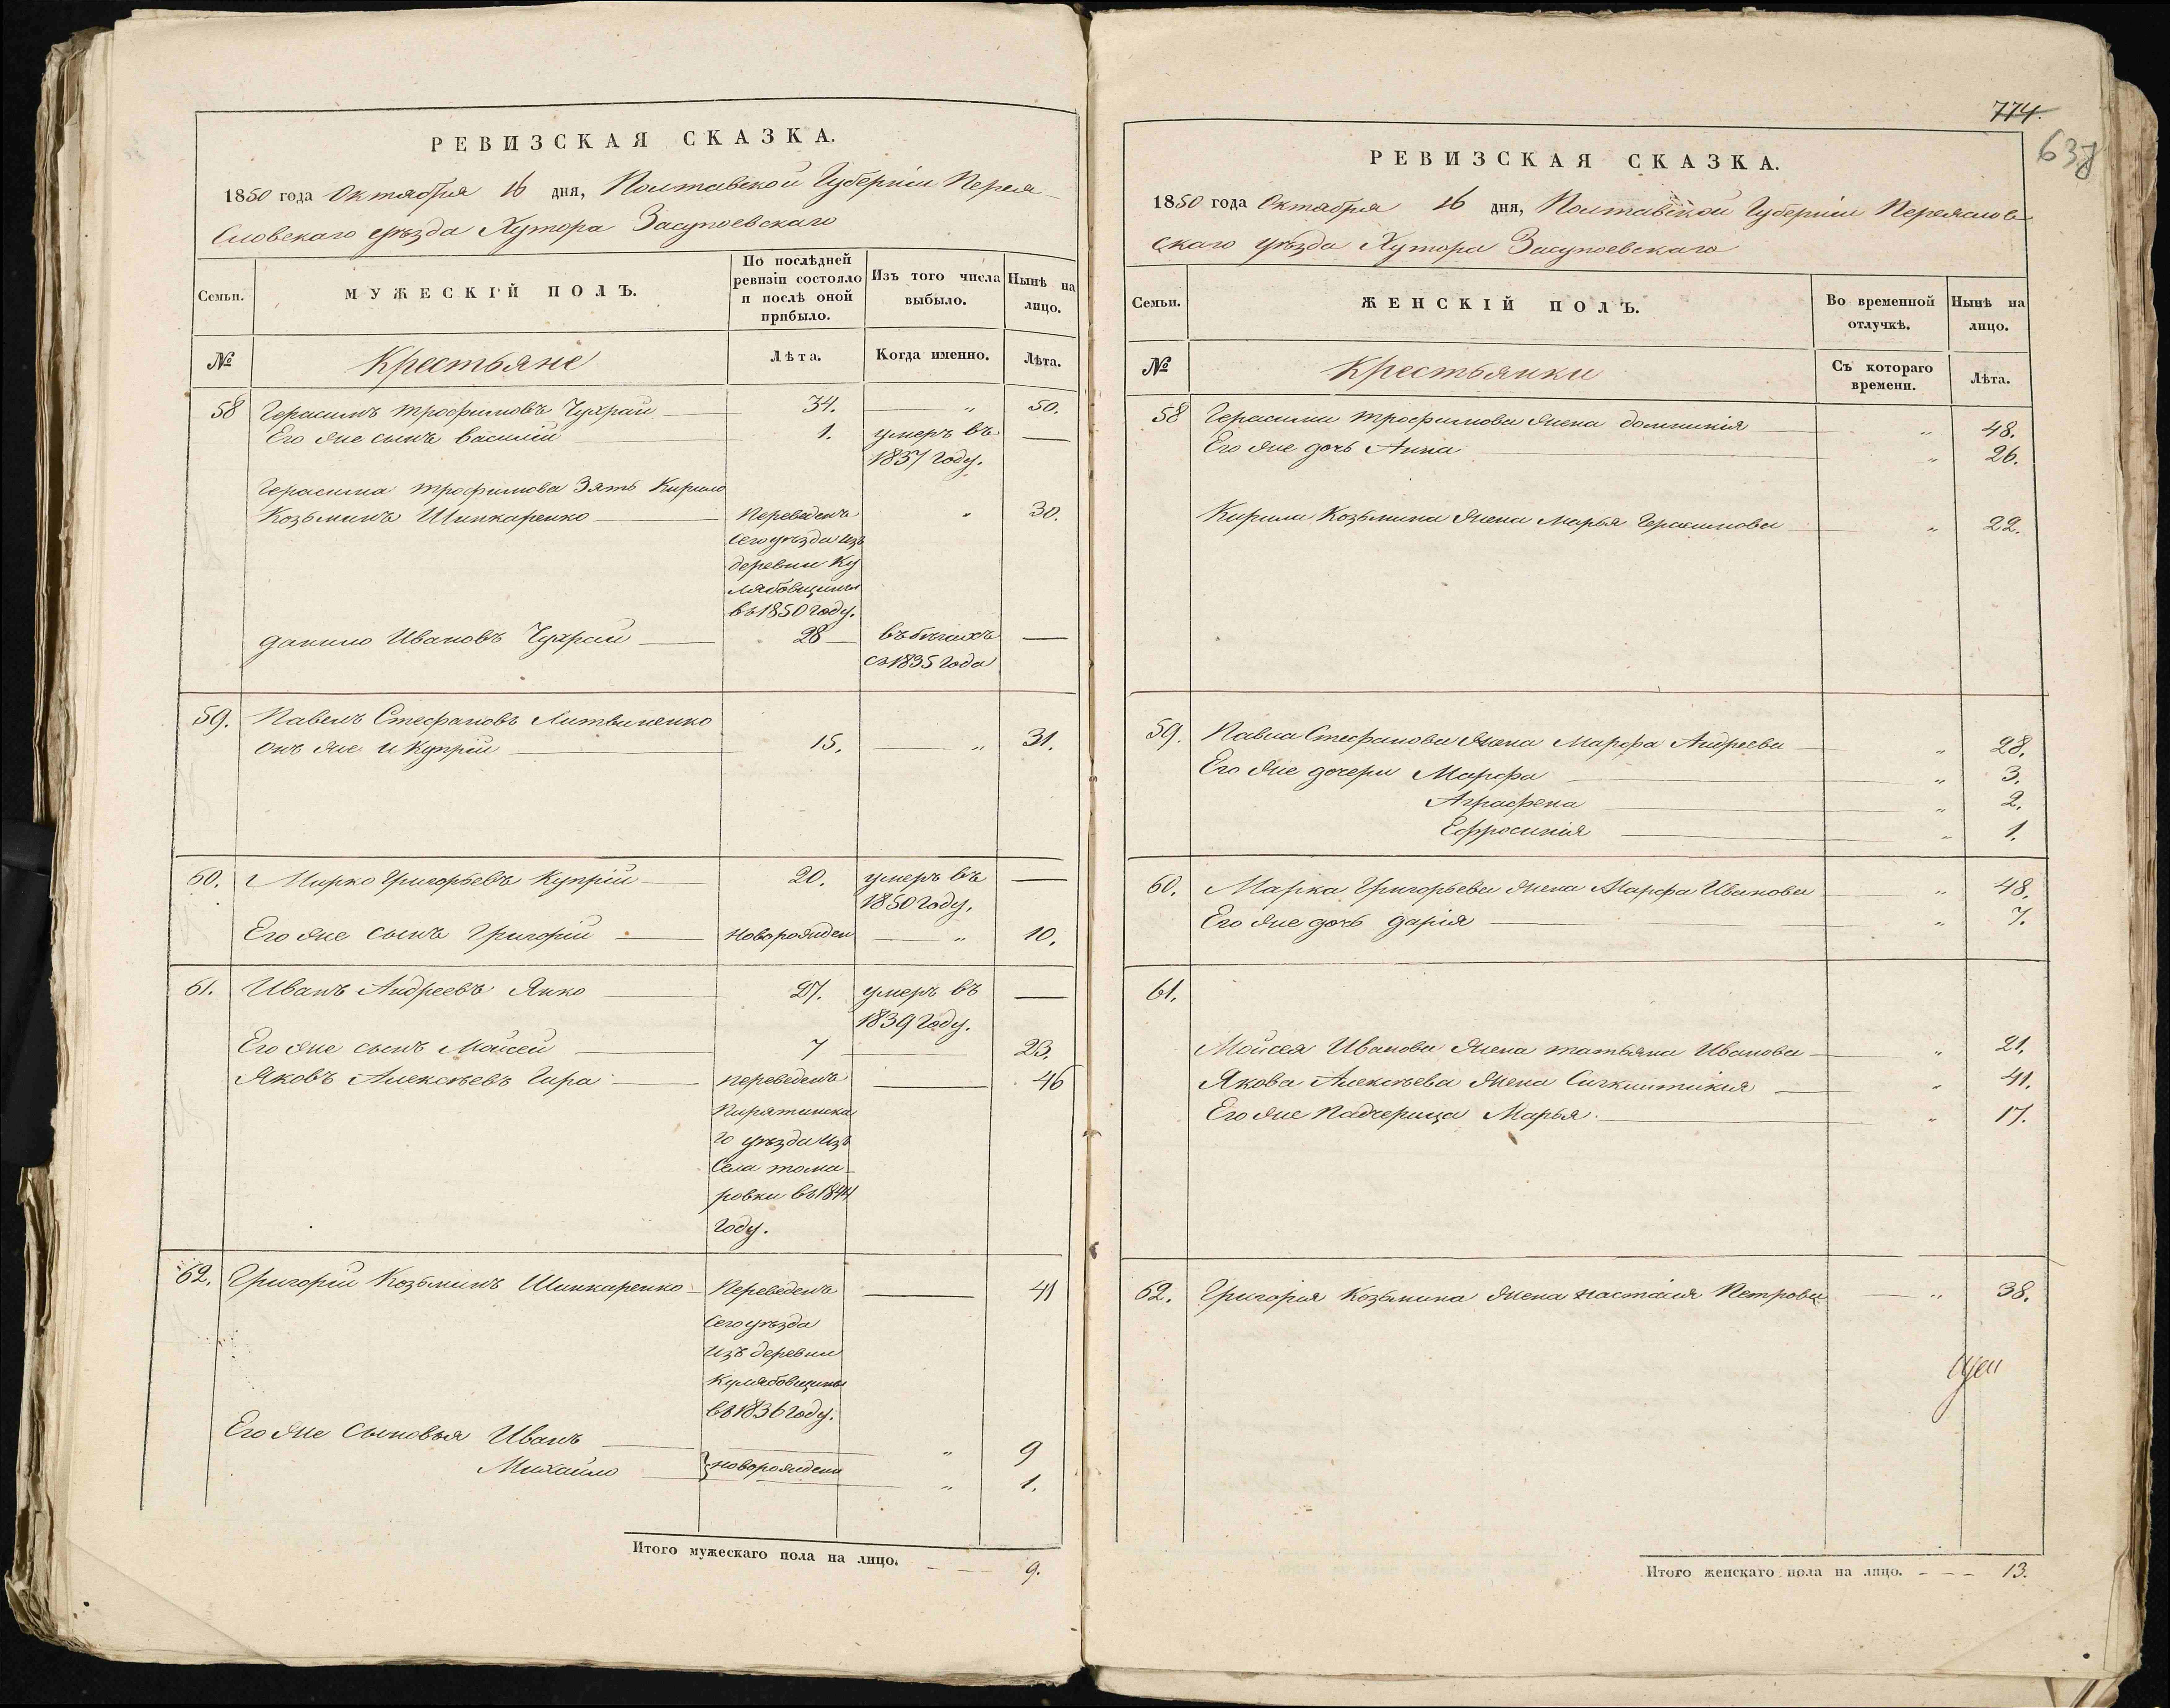 РЕВИЗСКАЯ СКАЗКА.
1850 года Октября 16 дня, Полтавской Губерніи Перея
словскаго уѣзда Хутора Засупоевскаго
Семьи.
МУЖЕСКІЙ ПОЛЪ.
По послѣдней ревизіи состояло и послѣ оной прибыло.
Изъ того числа выбыло.
Нынѣ на лицо.
№
Крестьяне
Лѣта.
Когда именно.
Лѣта.
58 Герасимъ Трофимовъ Чухрай 34. „ 50.
Его же сынъ Василій 1. умеръ въ
1837 году.
Герасима Трофимова Зять Кирило
Козьминъ Шинкаренко Переведенъ „ 30.
сего уѣзда изъ
деревни Ку
лябовщины
въ 1850 году.
Данило Ивановъ Чухрай 28 въ бѣгахъ
съ 1835 года
59. Павелъ Стефановъ Литвиненко
онъ же и Купрій 15. „ 31.
60. Марко Григорьевъ Купрій 20. умеръ въ
1850 году.
Его же сынъ Григорій новорожден „ 10.
61. Иванъ Андреевъ Янко 27. умеръ въ
1839 году.
Его же сынъ Мойсей 7 23.
Яковъ Алексѣевъ Гира переведенъ 46
Пирятинска
го уѣзда изъ
села тома
ровки въ 1844
году.
62. Григорій Козьминъ Шинкаренко Переведенъ 41
сего уѣзда
изъ деревни
Кулябовщины
въ 1836 году.
Его же Сыновья Иванъ „ 9
Михайло новорождени „ 1.
Итого мужескаго пола на лицо. 9.
774.
637
РЕВИЗСКАЯ СКАЗКА.
1850 года Октября 16 дня, Полтавской Губерніи Переяслов
скаго уѣзда Хутора Засупоевскаго
Семьи.
ЖЕНСКІЙ ПОЛЪ.
Во временной отлучкѣ.
Нынѣ на лицо.
№
Крестьянки
Съ котораго времени.
Лѣта.
58 Герасима Трофимова жена Домникія „ 48.
Его же дочь Анна „ 26.
Кирила Козьмина жена Марья Герасимова „ 22.
59. Павла Стефанова жена Марфа Андреева „ 28.
Его же дочери Марфа „ 3.
Аграфена „ 2.
Ефросинія „ 1.
60. Марка Григорьева жена Марфа Иванова „ 48.
Его же дочь Дарія „ 7.
61.
Мойсея Иванова жена татьяна Иванова „ 21.
Якова Алексѣева жена „ 41.
Его же Падчерица Марья „ 17.
62. Григорія Козьмина жена настасія Петрова „ 38.
Итого женскаго пола на лицо. 13.